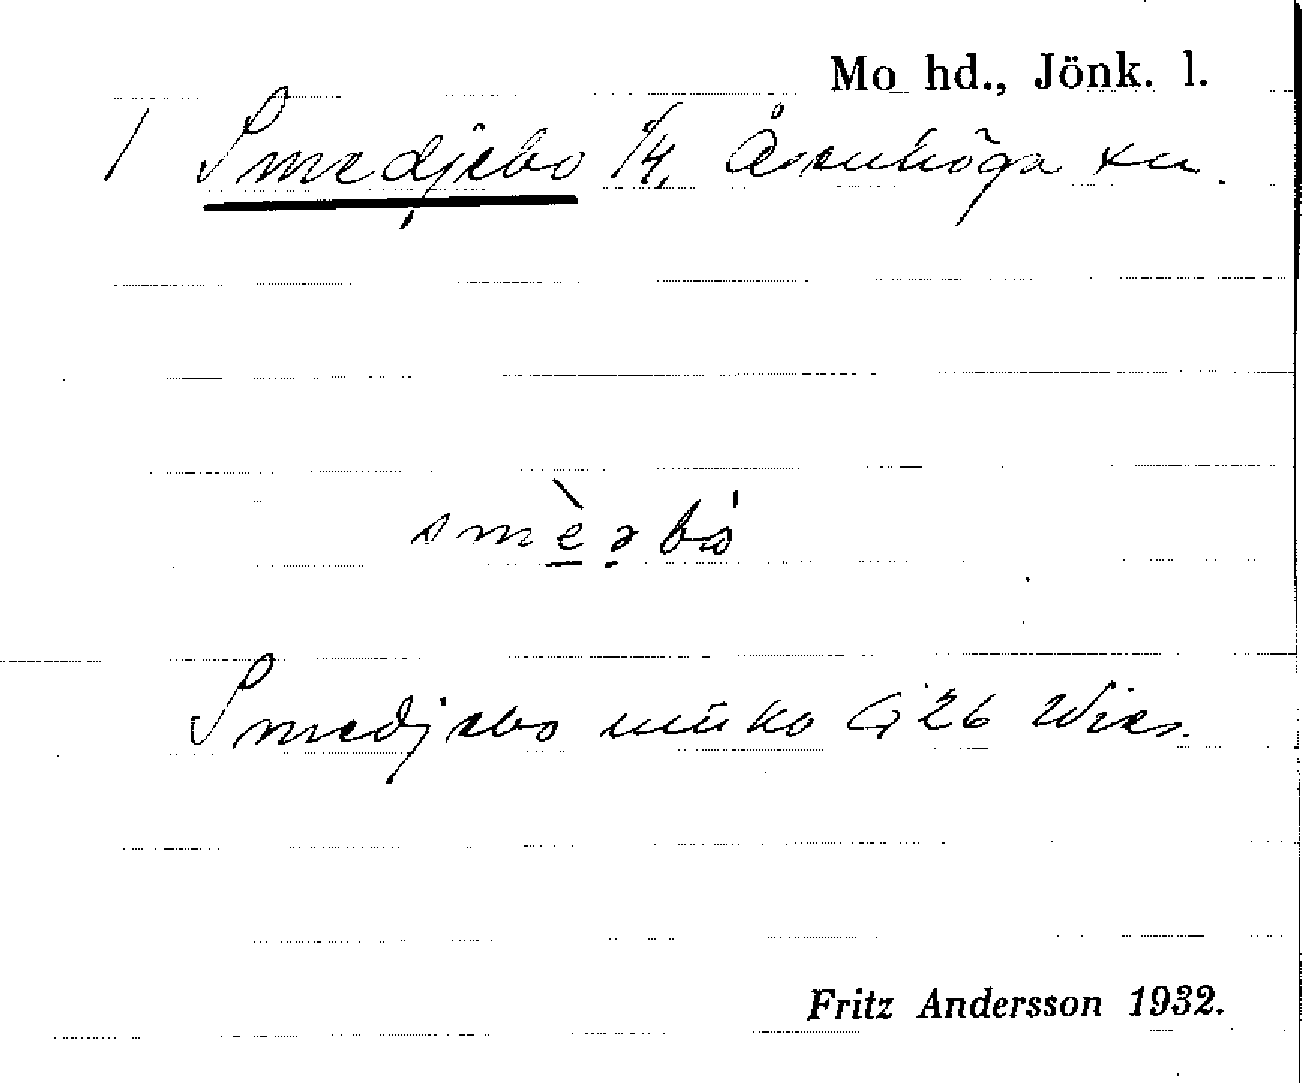 Mo hd., Jönk. l.
/ Smedjebo 1/4, Åsenhöga sn.
smèəbó
Smedjebo
Fritz Andersson 1932.